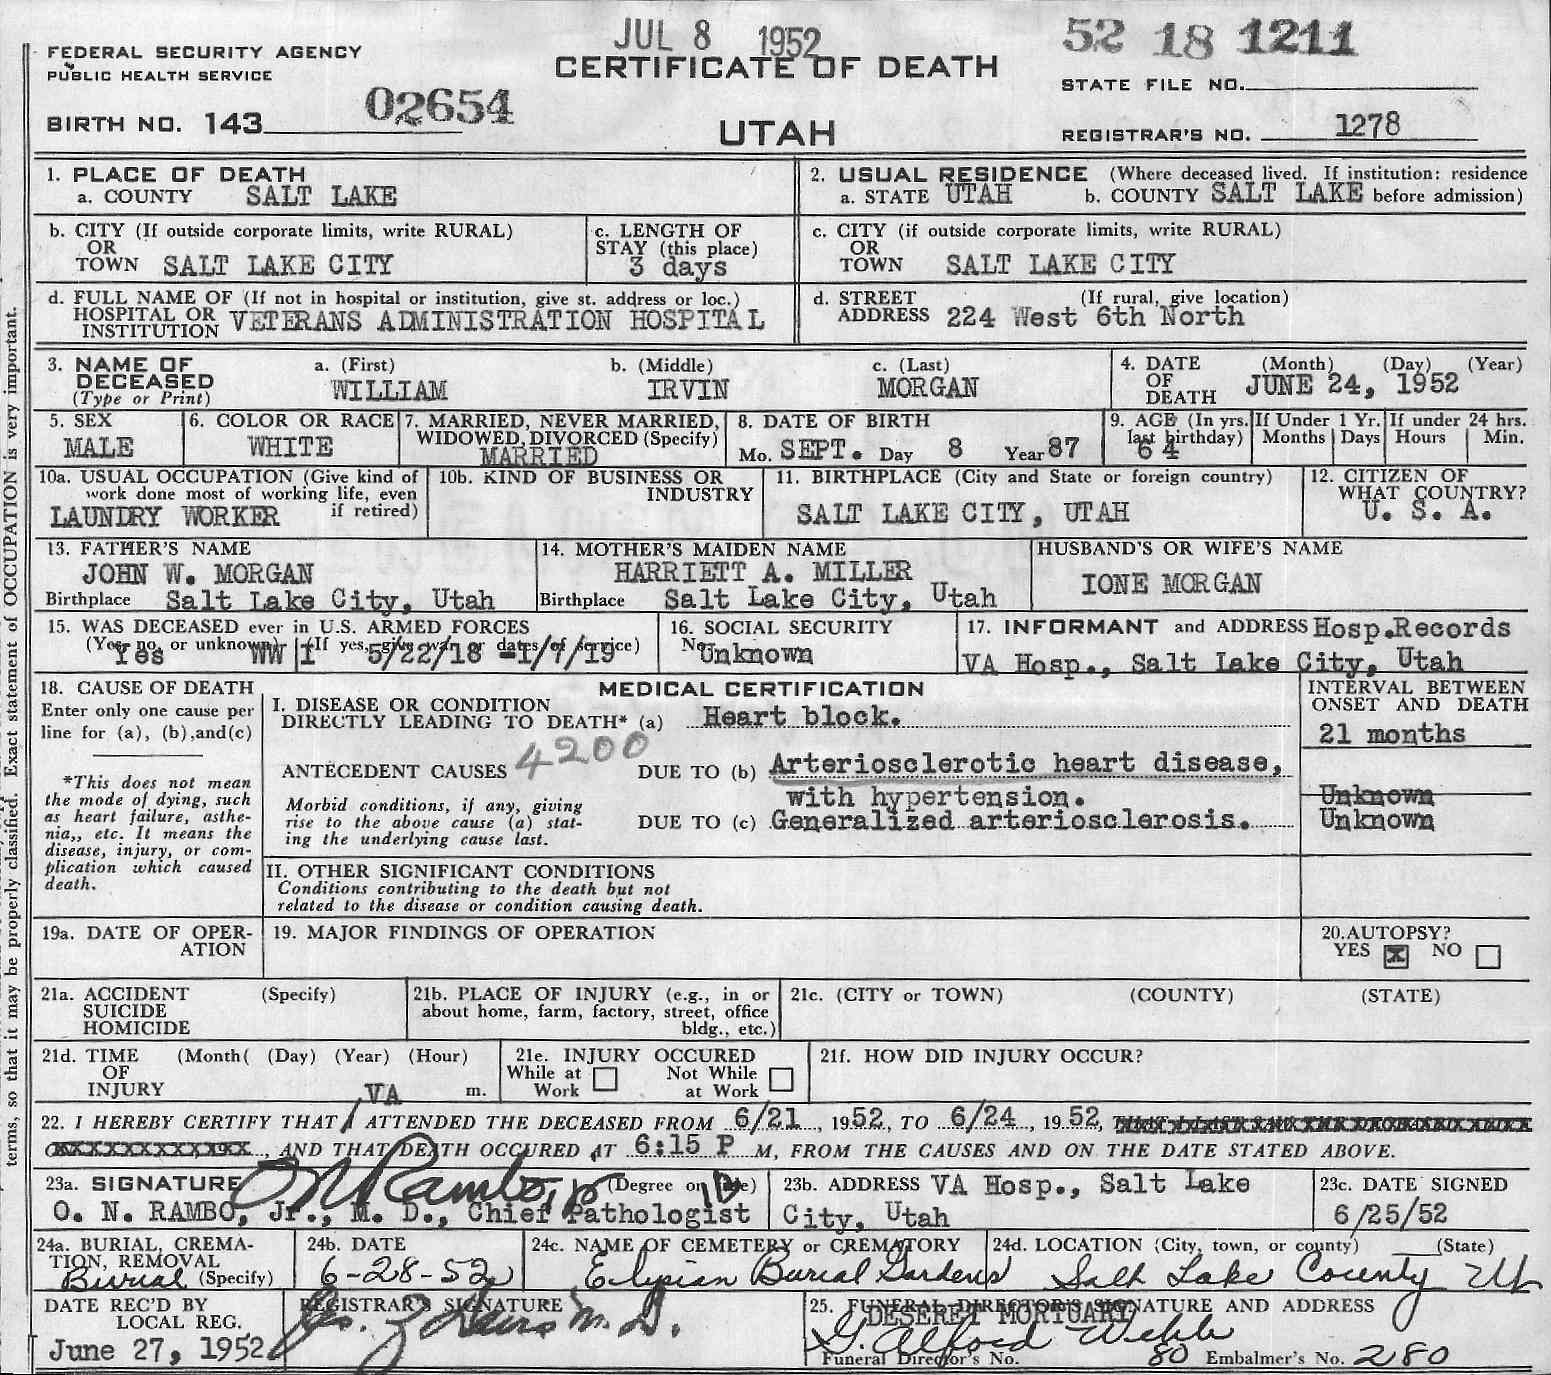 JUL 8 1952
52 18 1211
FEDERAL SECURITY AGENCY
PUBLIC HEALTH SERVICE
CERTIFICATE OF DEATH
STATE FILE NO.
BIRTH NO. 143 02654
UTAH
REGISTRAR'S NO. 1278
1. PLACE OF DEATH
a. COUNTY SALT LAKE
2. USUAL RESIDENCE (Where deceased lived. If institution: residence
a. STATE UTAH b. COUNTY SALT LAKE before admission)
b. CITY (If outside corporate limits, write RURAL)
OR
TOWN SALT LAKE CITY
c. LENGTH OF
STAY (this place)
3 days
c. CITY (if outside corporate limits, write RURAL)
OR
TOWN SALT LAKE CITY
d. FULL NAME OF (If not in hospital or institution, give st. address or loc.)
HOSPITAL OR
INSTITUTION VETERANS ADMINISTRATION HOSPITAL
d. STREET (If rural, give location)
ADDRESS 224 West 6th North
3. NAME OF
DECEASED
(Type or Print)
a. (First)
WILLIAM
b. (Middle)
IRVIN
c. (Last)
MORGAN
4. DATE (Month) (Day) (Year)
OF
DEATH JUNE 24, 1952
5. SEX
MALE
6. COLOR OR RACE
WHITE
7. MARRIED, NEVER MARRIED,
WIDOWED, DIVORCED (Specify)
MARRIED
8. DATE OF BIRTH
Mo. SEPT. Day 8 Year 87
9. AGE (In yrs.
last birthday)
64
If Under 1 Yr.
Months Days
If under 24 hrs.
Hours Min.
10a. USUAL OCCUPATION (Give kind of
work done most of working life, even
if retired)
LAUNDRY WORKER
10b. KIND OF BUSINESS OR
INDUSTRY
11. BIRTHPLACE (City and State or foreign country)
SALT LAKE CITY, UTAH
12. CITIZEN OF
WHAT COUNTRY?
U. S. A.
13. FATHER'S NAME
JOHN W. MORGAN
Birthplace Salt Lake City, Utah
14. MOTHER'S MAIDEN NAME
HARRIETT A. MILLER
Birthplace Salt Lake City, Utah
HUSBAND'S OR WIFE'S NAME
IONE MORGAN
15. WAS DECEASED ever in U.S. ARMED FORCES
(Yes, no, or unknown) (If yes, give war or dates of service)
Yes WW I 5/22/18 -1/ /19
16. SOCIAL SECURITY
No.
Unknown
17. INFORMANT and ADDRESS Hosp.Records
VA Hosp., Salt Lake City, Utah
18. CAUSE OF DEATH
Enter only one cause per
line for (a), (b),and(c)
*This does not mean
the mode of dying, such
as heart failure, asthe-
nia,, etc. It means the
disease, injury, or com-
plication which caused
death.
MEDICAL CERTIFICATION
I. DISEASE OR CONDITION
DIRECTLY LEADING TO DEATH* (a) Heart block.
4200
ANTECEDENT CAUSES DUE TO (b) Arteriosclerotic heart disease,
with hypertension.
Morbid conditions, if any, giving
rise to the above cause (a) stat-
ing the underlying cause last.
DUE TO (c) Generalized arteriosclerosis.
INTERVAL BETWEEN
ONSET AND DEATH
21 months
Unknown
Unknown
II. OTHER SIGNIFICANT CONDITIONS
Conditions contributing to the death but not
related to the disease or condition causing death.
19a. DATE OF OPER-
ATION
19. MAJOR FINDINGS OF OPERATION
20.AUTOPSY?
YES X NO
21a. ACCIDENT (Specify)
SUICIDE
HOMICIDE
21b. PLACE OF INJURY (e.g., in or
about home, farm, factory, street, office
bldg., etc.)
21c. (CITY or TOWN) (COUNTY) (STATE)
21d. TIME (Month( (Day) (Year) (Hour)
OF
INJURY m.
21e. INJURY OCCURED
While at
Work
Not While
at Work
21f. HOW DID INJURY OCCUR?
VA
22. I HEREBY CERTIFY THAT ATTENDED THE DECEASED FROM 6/21, 1952, TO 6/24, 1952,
AND THAT DEATH OCCURED AT 6:15 P M, FROM THE CAUSES AND ON THE DATE STATED ABOVE.
23a. SIGNATURE O N Rambo, Jr (Degree or title)
O. N. RAMBO, Jr., M. D., Chief Pathologist
23b. ADDRESS VA Hosp., Salt Lake
City, Utah
23c. DATE SIGNED
6/25/52
24a. BURIAL, CREMA-
TION, REMOVAL
Burial (Specify)
24b. DATE
6-28-52
24c. NAME OF CEMETERY or CREMATORY
Elysian Burial Gardens
24d. LOCATION (City, town, or county) (State)
Salt Lake County Ut
DATE REC'D BY
LOCAL REG.
June 27, 1952
REGISTRAR'S SIGNATURE
M. D.
25. FUNERAL DIRECTOR'S SIGNATURE AND ADDRESS
DESERET MORTUARY
G. Alford Webb
Funeral Director's No. 80 Embalmer's No. 280
terms, so that it may be properly classified. Exact statement of OCCUPATION is very important.